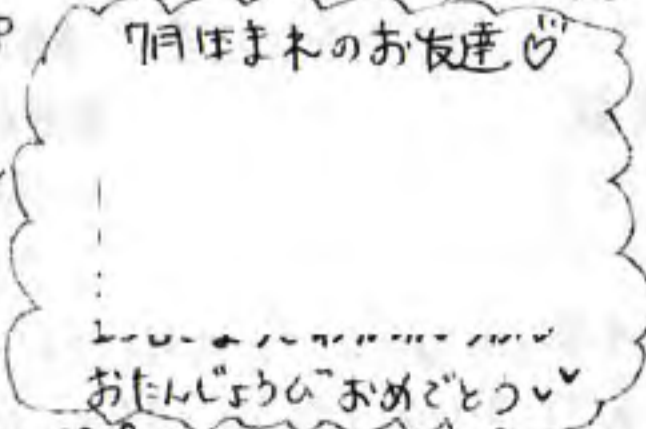 7月生まれのお友達♡
おたんじょうび おめでとう♥